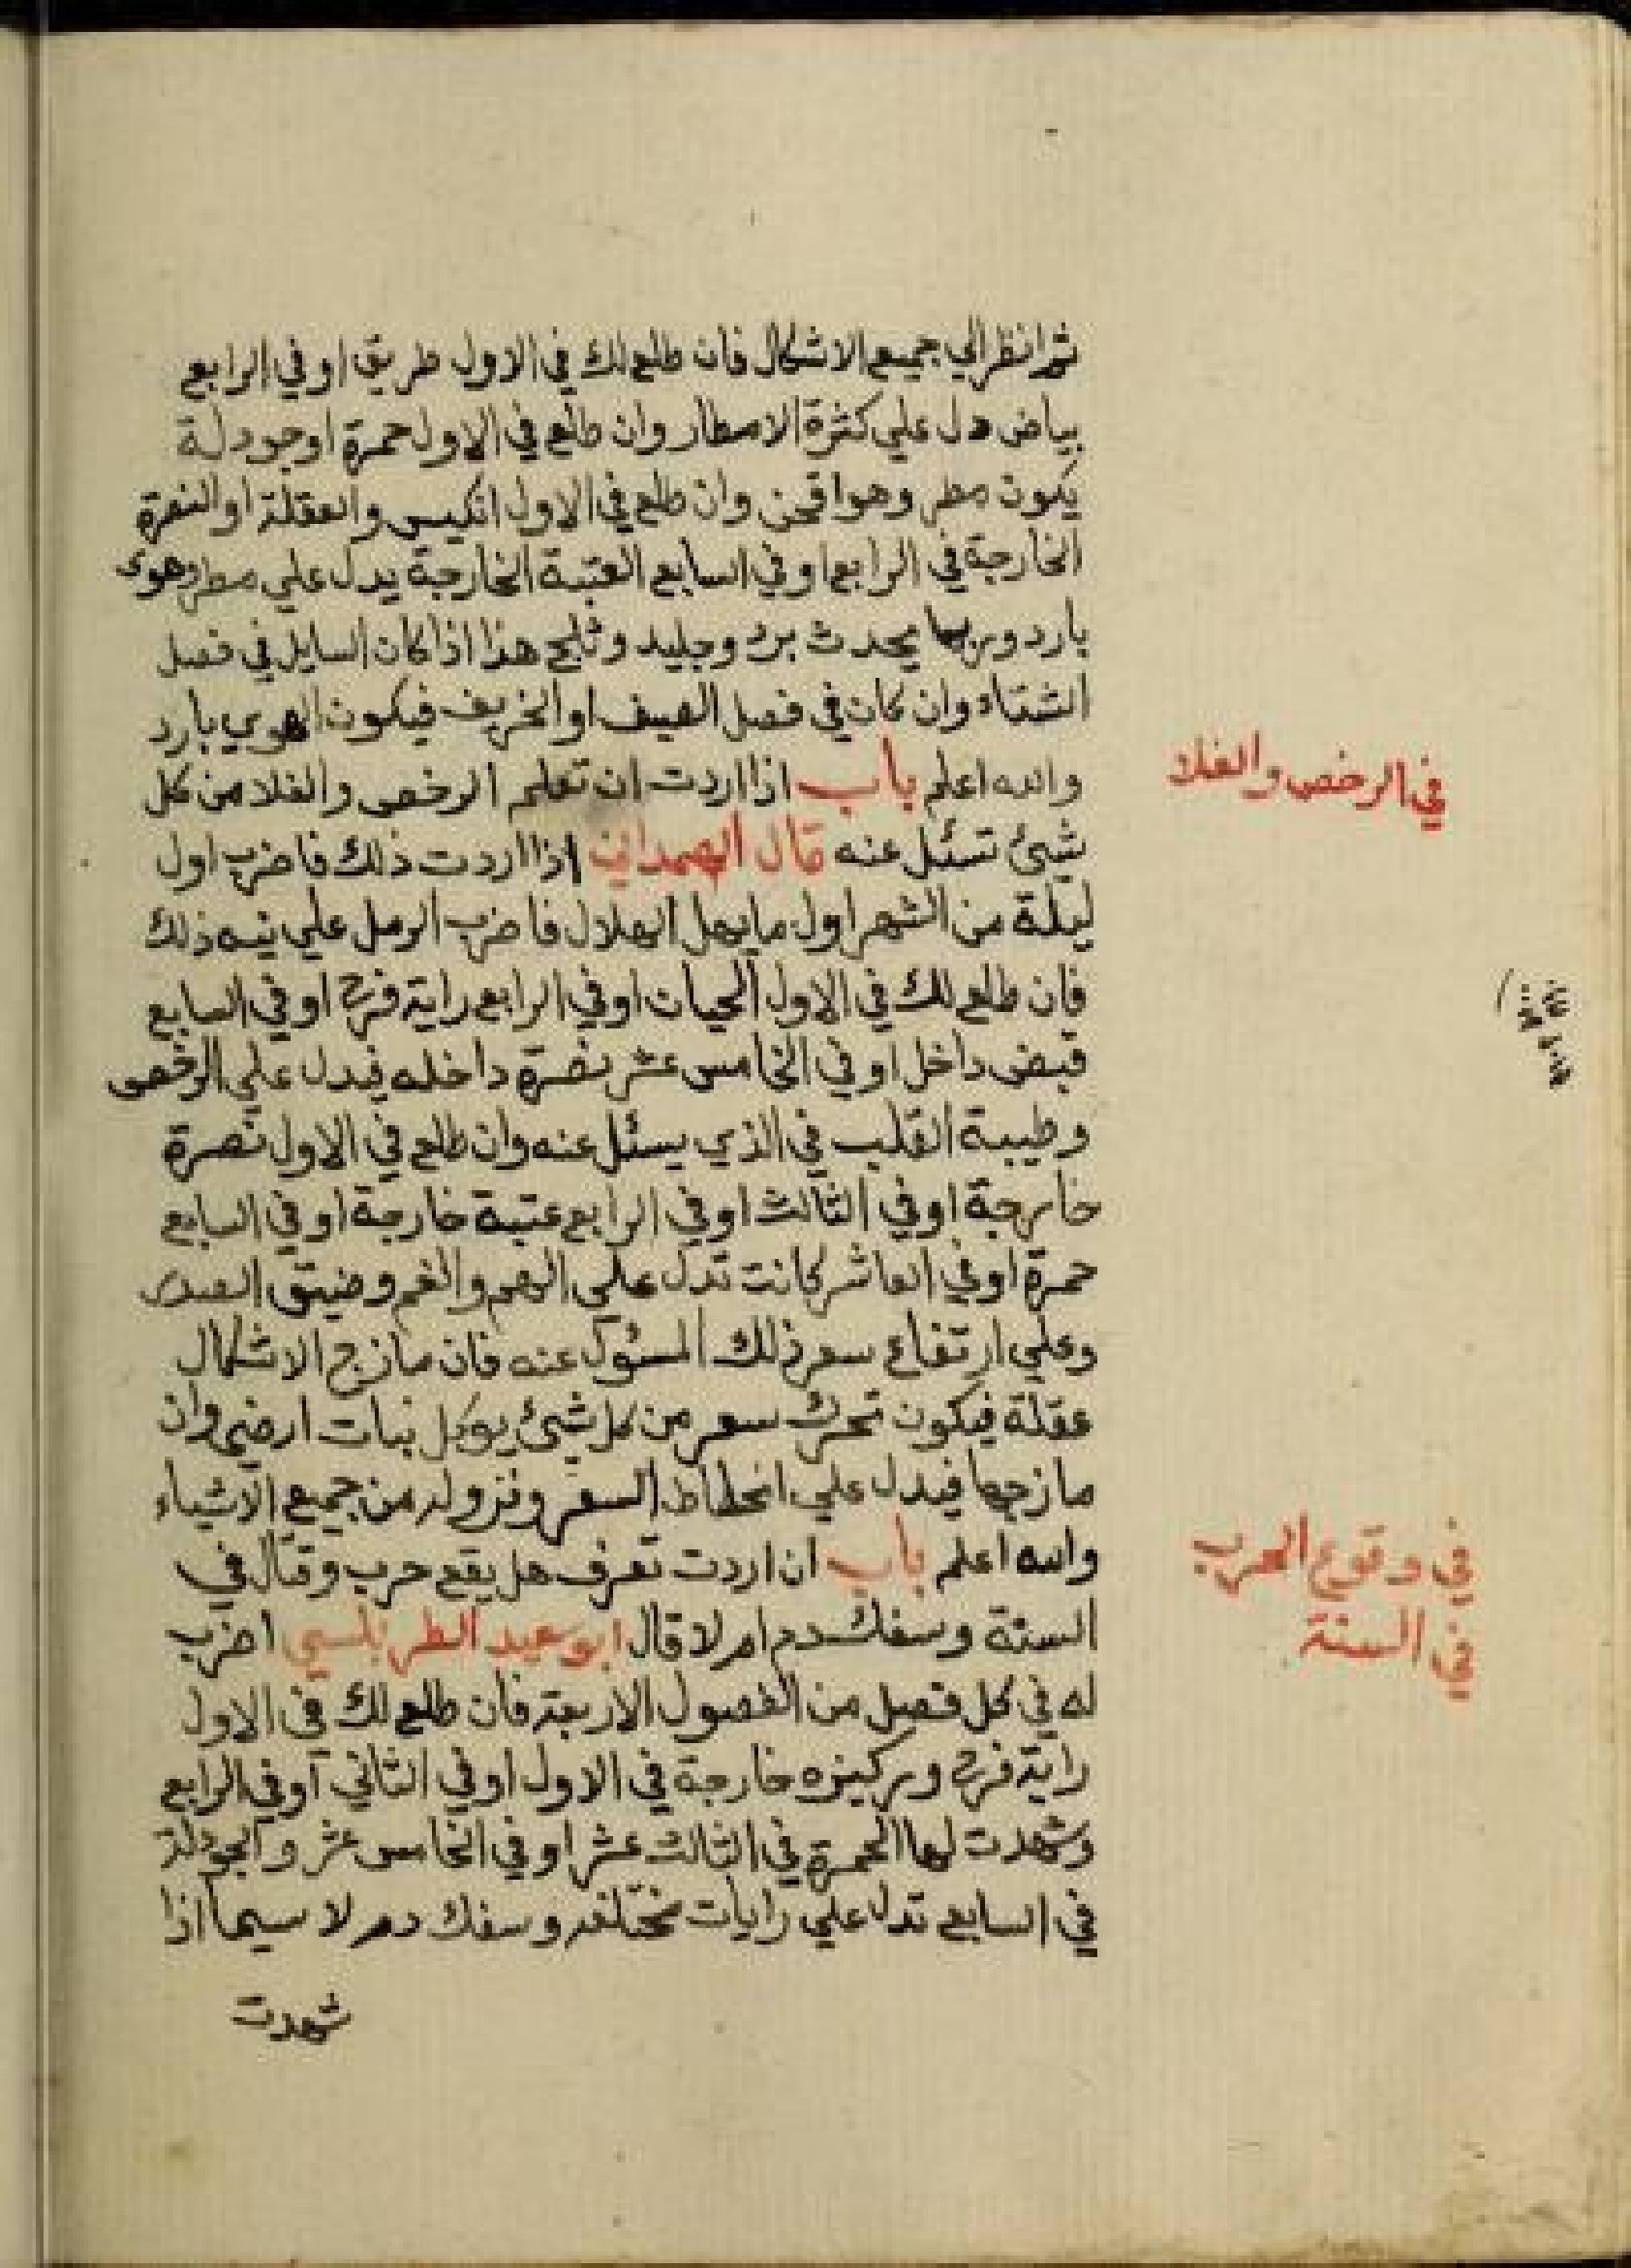 ثم انظر الي جميع الاشكال فان طلع لك في الاول طريق او في الرابع
بياض دل علي كثرة الامطار وان طلع في الاول حمرة او جودلة
يكون مطر وهوا وان طلع في الاول انكيس والعقلة او النصرة
الخارجة في الرابع او في السابع العتبة الخارجة يدل علي مطر وهوى
بارد وربما يحدث برد وجليد وثلج هذا اذا كان السايل في فصل
الشتاء وان كان في فصل الصيف او الخريف فيكون الهوي بارد
والله اعلم باب اذا اردت ان تعلم الرخص والغلا من كل
في الرخص والغلا
شيئ تسئل عنه قال الهمداني اذا اردت ذلك فاضرب اول
ليلة من الشهر اول ما يهل الهلال فاضرب الرمل علي نيه ذلك
فان طلع لك في الاول الحيان او في الرابع راية فرح او في السابع
قبض داخل او في الخامس عشر نصرة داخله فيدل علي الرخص
وطيبة القلب في الذي يسئل عنه وان طلع في الاول نصرة
خارجة او في الثالث او في الرابع عتبة خارجة او في السابع
حمرة او في العاشر كانت تدل علي الهم والغم وضيق الصدر
وعلي ارتفاع سعر ذلك المسئول عنه فان مازج الاشكال
عقلة فيكون تحرك سعر من كل شيئ يوكل نبات ارضي وان
مازجها فيدل علي انحطاط السعر ونزوله من جميع الاشياء
والله اعلم باب ان اردت تعرف هل يقع حرب وقتال في
في وقوع الحرب
في السنة
السنة وسفك دم ام لا قال ابو سعيد الطربلسي اضرب
له في كل فصل من الفصول الاربعة فان طلع لك في الاول
راية فرح وركيزه خارجة في الاول او في الثاني او في الرابع
وشهدت لها الحمرة في الثالث عشر او في الخامس عشر والجودلة
في السابع تدل علي رايات مختلفه وسفك دم لا سيما اذا
شهدت